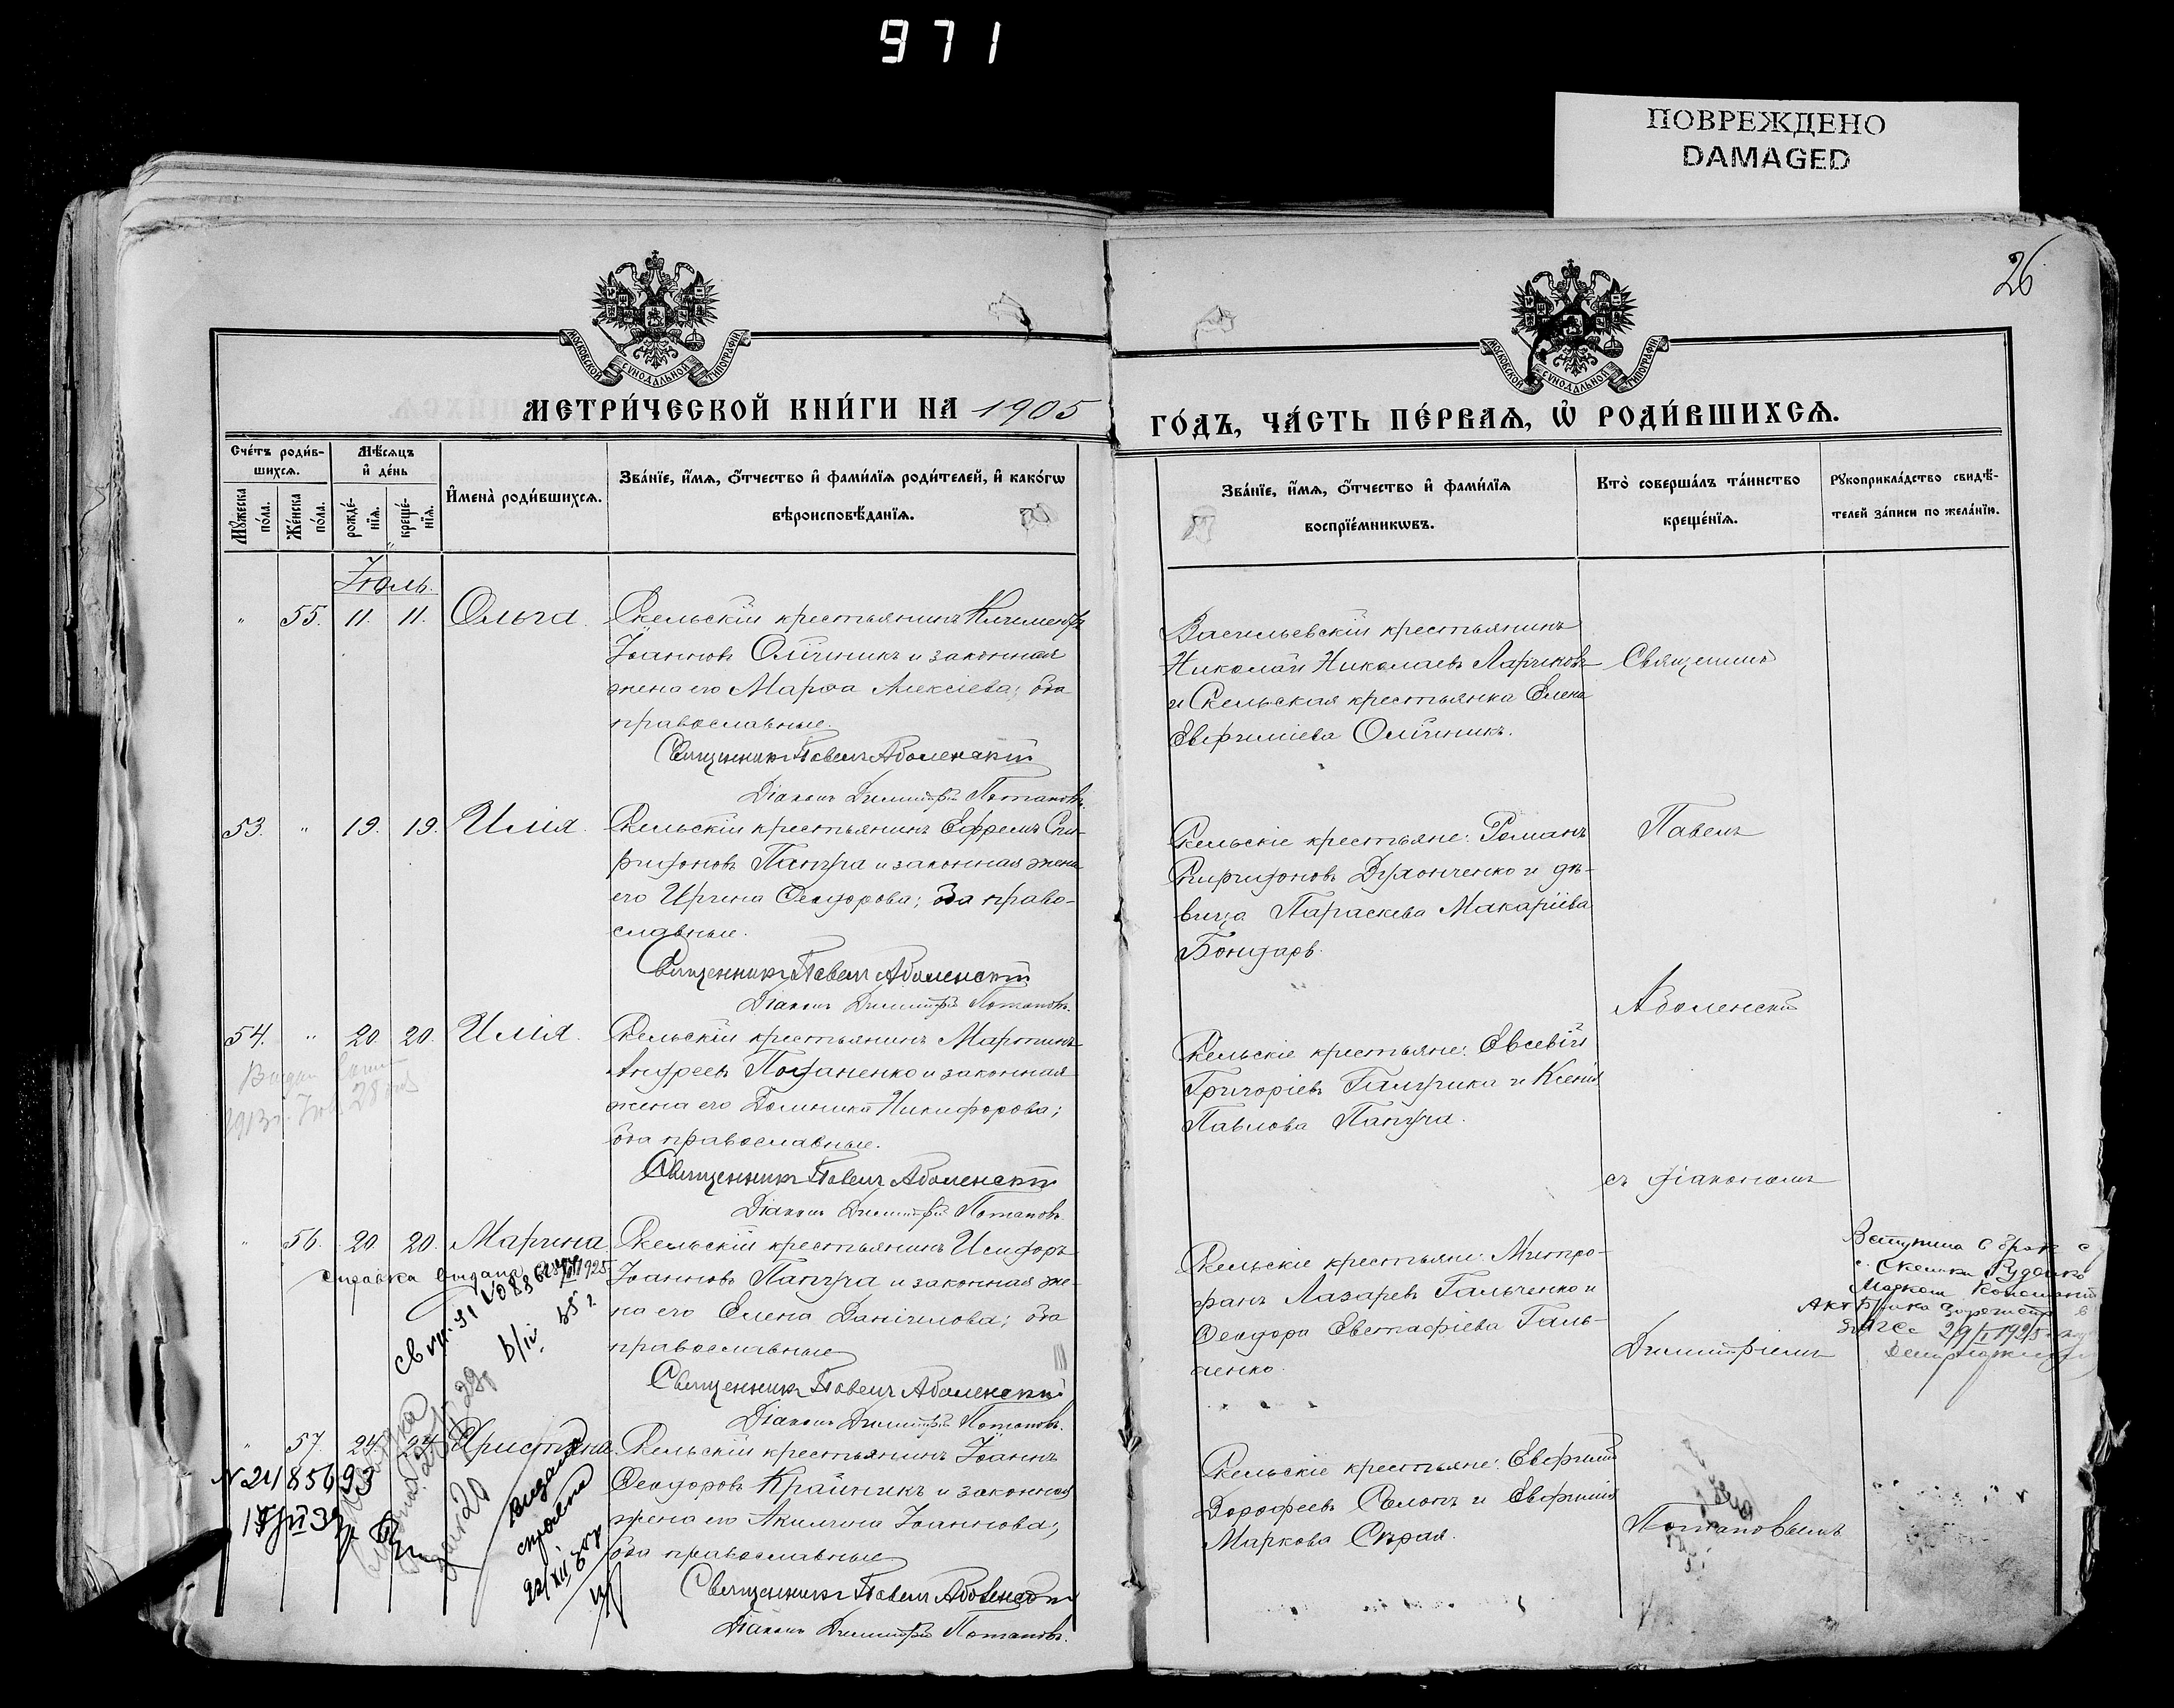 971
ПОВРЕЖДЕНО
DAMAGED
26
МОСКОВСКОЙ СУНОДАЛЬНОЙ ТИПОГРАФІИ
МОСКОВСКОЙ СУНОДАЛЬНОЙ ТИПОГРАФІИ
МЕТРИ́ЧЕСКОЙ КНИ́ГИ НА 1905
ГО́ДЪ, ЧА́СТЬ ПЕ́РВАѦ, Ѡ҆ РОДИ́ВШИХСѦ.
Сче́тъ роди́в-
шихсѧ.
Мꙋ́жеска по́ла.
Же́нска по́ла.
Мѣ́сяцъ
и҆ де́нь
рожде́-
нїѧ.
креще́-
нїѧ.
И҆мена̀ роди́вшихсѧ.
Зва́нїе, и҆́мѧ, ѻ҆́тчество и҆ фами́лїѧ роди́телей, и҆ како́гѡ
вѣроисповѣ́данїѧ.
Зва́нїе, и҆́мѧ, ѻ҆́тчество и҆ фами́лїѧ
воспрїе́мникѡвъ.
Кто̀ соверша́лъ та́инство
креще́нїѧ.
Рꙋкоприкла́дство свидѣ́-
телей за́писи по жела́нїю.
Іюль.
" 55. 11. 11. Ольга.
Скельскій крестьянинъ Климентъ
Іоанновъ Олійникъ и законная
жена его Марѳа Алексіева; оба
православные.
Священникъ Павелъ Аболенскій
Діаконъ Димитрій Потаповъ.
Васильевскій крестьянинъ
Николай Николаевъ Лариковъ
и Скельская крестьянка Елена
Евфиміева Олійникъ.
Священникъ
53. " 19. 19. Илія.
Скельскій крестьянинъ Ефремъ Спи-
ридоновъ Папуча и законная жена
его Ирина Ѳеодорова; оба право-
славные.
Священникъ Павелъ Аболенскій
Діаконъ Димитрій Потаповъ.
Скельскіе крестьяне: Романъ
Спиридоновъ Духонченко и дѣ-
вица Параскева Макаріева
Бондарь.
Павелъ
Аболенскій
54. " 20. 20. Илія.
Скельскій крестьянинъ Мартинъ
Андреевъ Поданенко и законная
жена его Доминика Никифорова;
оба православные.
Священникъ Павелъ Аболенскій
Діаконъ Димитрій Потаповъ.
Скельскіе крестьяне: Евсевій
Григоріевъ и Ксенія
Павлова Папуча.
съ діакономъ
" 56. 20. 20. Марина
Скельскій крестьянинъ Исидоръ
Іоанновъ Папуча и законная же-
на его Елена Даніилова; оба
православные
Священникъ Павелъ Аболенскій
Діаконъ Димитрій Потаповъ.
справка выдана 1925
Скельскіе крестьяне: Митро-
фанъ Лазаревъ Гальченко и
Ѳеодора Евстафіева Галь-
ченко.
Димитріемъ
Вступила в брак с
с. Скельки Руденко
" 57. 24. 24. Христина.
Скельскій крестьянинъ Іоаннъ
Ѳеодоровъ Крайникъ и законная
жена его Акилина Іоаннова;
оба православные
Священникъ Павелъ Аболенскій
Діаконъ Димитрій Потаповъ.
Скельскіе крестьяне: Евфимій
Дороѳеевъ и Евфимія
Маркова Сѣрая.
Потаповымъ
выдана